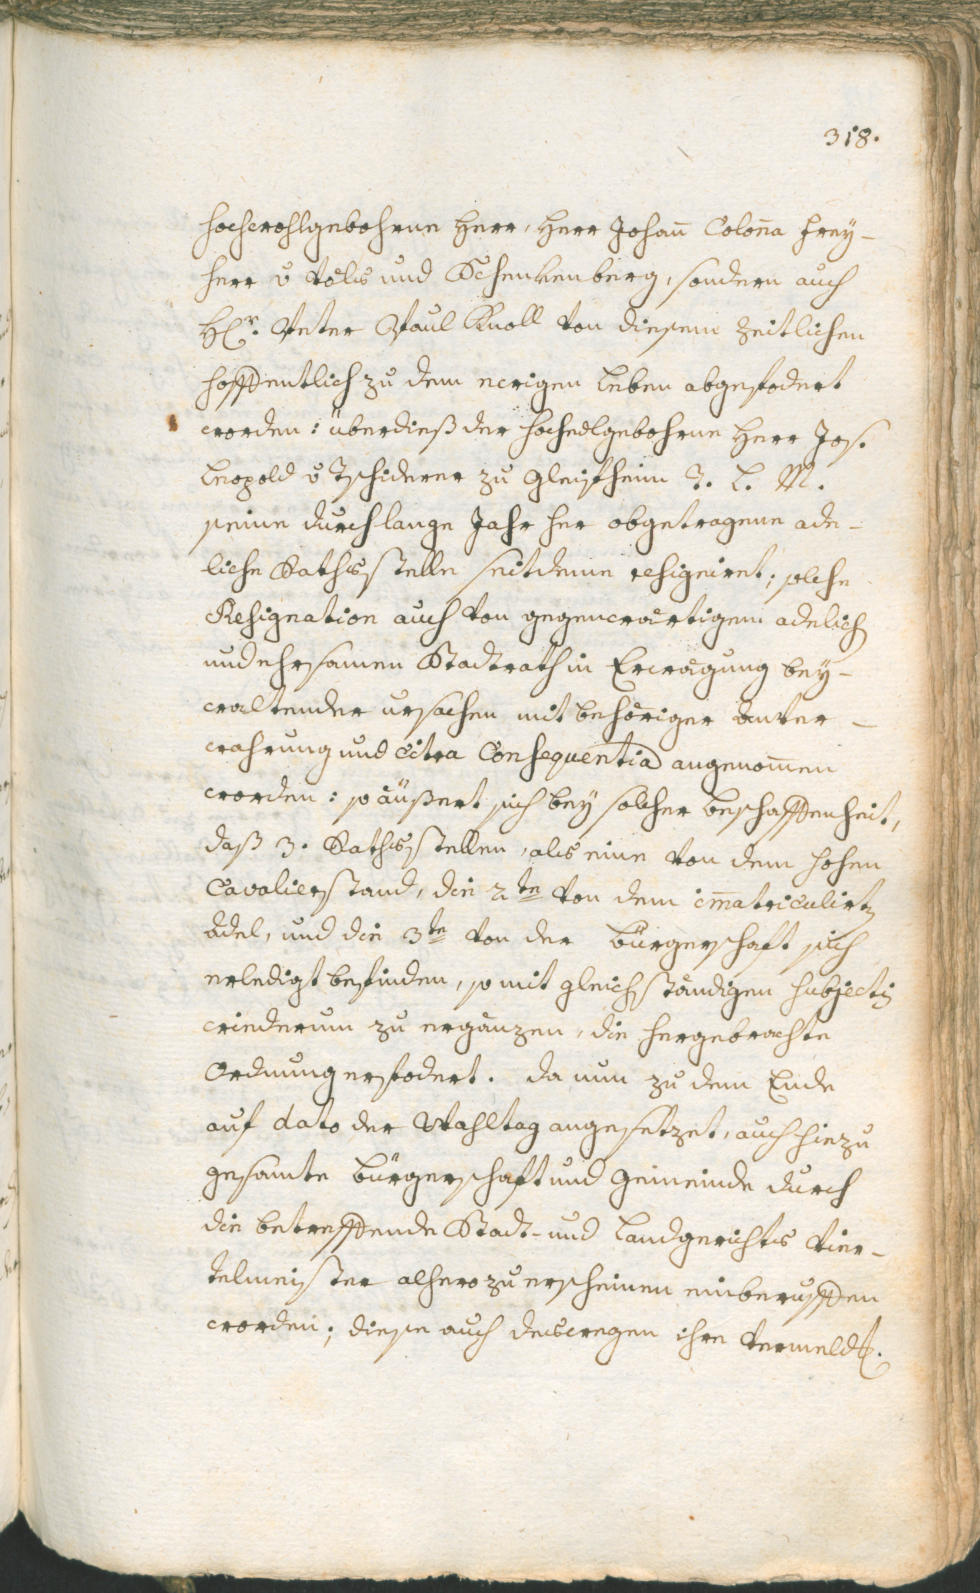 318.
hochwohlgebohrne Herr, Herr Johann̄ Colonna Frey-
herr v Vels und Schenkenberg, sondern auch
H̄r. Peter Paul Knoll von diesem Zeitlichen
hoffentlich zu dem ewigen Leben abgefodert
worden: überdieß der hochedlgebohrne Herr Jos.
Leopold v Tschiderer zu Gleifheim T. L. M.
seine durch lange Jahr her obgetragene ade-
liche Rathsstelle seitdeme resigniret; solche
Resignation auch von gegenwärtigem adelich
und ehrsamen Stadtrath in Erwägung bey-
waltender ursachen mit behöriger Anver-
wahrung und citra Consequentia angenom̄en
worden: so äußert sich bey solcher beschaffenheit,
daß 3. Rathsstellen, als eine von dem hohen
Cavalierstand, die 2te von dem im̄atriculirtn
Adel, und die 3te von der Bürgerschaft sich
erledigt befinden, so mit gleichständigen Subjectis
wiederum zu ergänzen, die hergebrachte
Ordnung erfodert. Da nun zu dem Ende
auf dato der Wahltag angesetzet, auch hiezu
gesamte Bürgerschaft und Gemeinde durch
die betreffende Stadt- und Landgerichts Vier-
telmeister alhero zu erscheinen einberuffen
worden; diese auch deswegen ihre Vermeldt.